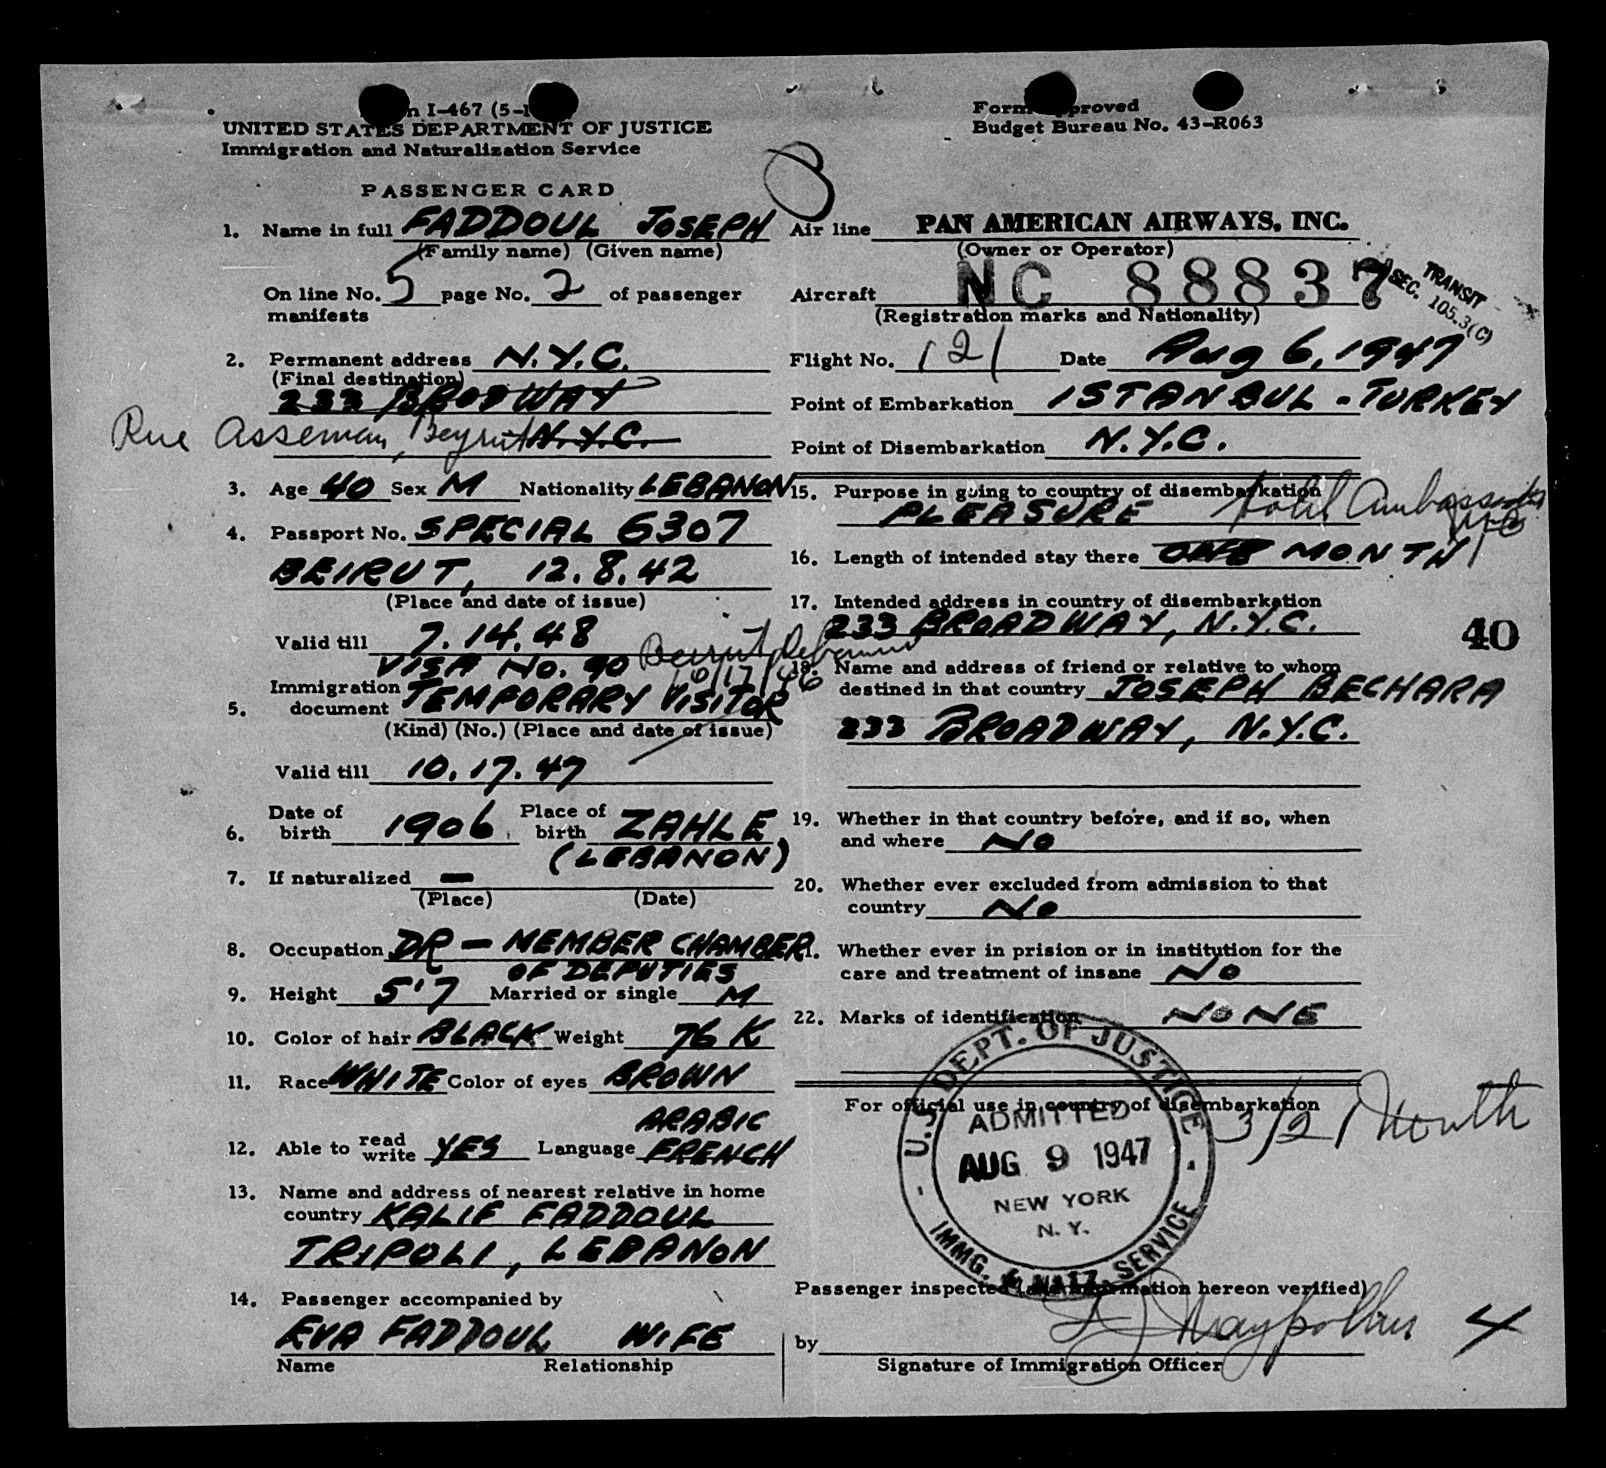 Form I-467 (5-1
UNITED STATES DEPARTMENT OF JUSTICE
Immigration and Naturalization Service
PASSENGER CARD
1. Name in full FADDOUL JOSEPH
(Family name) (Given name)
On line No. 5 page No. 2 of passenger
manifests
2. Permanent address N.Y.C.
(Final destination)
233 BRODWAY
Rue Asseman, Beyrut N.Y.C.
3. Age 40 Sex M Nationality LEBANON
4. Passport No. SPECIAL 6307
BEIRUT, 12.8.42
(Place and date of issue)
Valid till 7.14.48
VISA NO. 90 Beirut Lebanon
10/17/46
5. Immigration document TEMPORARY VISITOR
(Kind) (No.) (Place and date of issue)
Valid till 10.17.47
6. Date of birth 1906 Place of birth ZAHLE
(LEBANON)
7. If naturalized –
(Place) (Date)
8. Occupation DR – MEMBER CHAMBER
OF DEPUTIES
9. Height 5'7 Married or single M
10. Color of hair BLACK Weight 76 K
11. Race WHITE Color of eyes BROWN
ARABIC
12. Able to read write YES Language FRENCH
13. Name and address of nearest relative in home
country KALIF FADDOUL
TRIPOLI, LEBANON
14. Passenger accompanied by
EVA FADDOUL WIFE
Name Relationship
Form Approved
Budget Bureau No. 43-R063
Air line PAN AMERICAN AIRWAYS, INC.
(Owner or Operator)
Aircraft NC 88837
TRANSIT
SEC. 105.3(C)
(Registration marks and Nationality)
Flight No. 121 Date Aug 6, 1947
Point of Embarkation ISTANBUL - TURKEY
Point of Disembarkation N.Y.C.
15. Purpose in going to country of disembarkation
PLEASURE Hotel Ambassador
NYC
16. Length of intended stay there ONE MONTH
17. Intended address in country of disembarkation
233 BROADWAY, N.Y.C.
40
18. Name and address of friend or relative to whom
destined in that country JOSEPH BECHARA
233 BROADWAY, N.Y.C.
19. Whether in that country before, and if so, when
and where NO
20. Whether ever excluded from admission to that
country NO
21. Whether ever in prision or in institution for the
care and treatment of insane NO
22. Marks of identification NONE
For official use in country of disembarkation
3/2 1 Month
U.S. DEPT. OF JUSTICE
ADMITTED
AUG 9 1947
NEW YORK
N.Y.
IMMG. & NATZ. SERVICE
Passenger inspected (and information hereon verified)
by
4
Signature of Immigration Officer